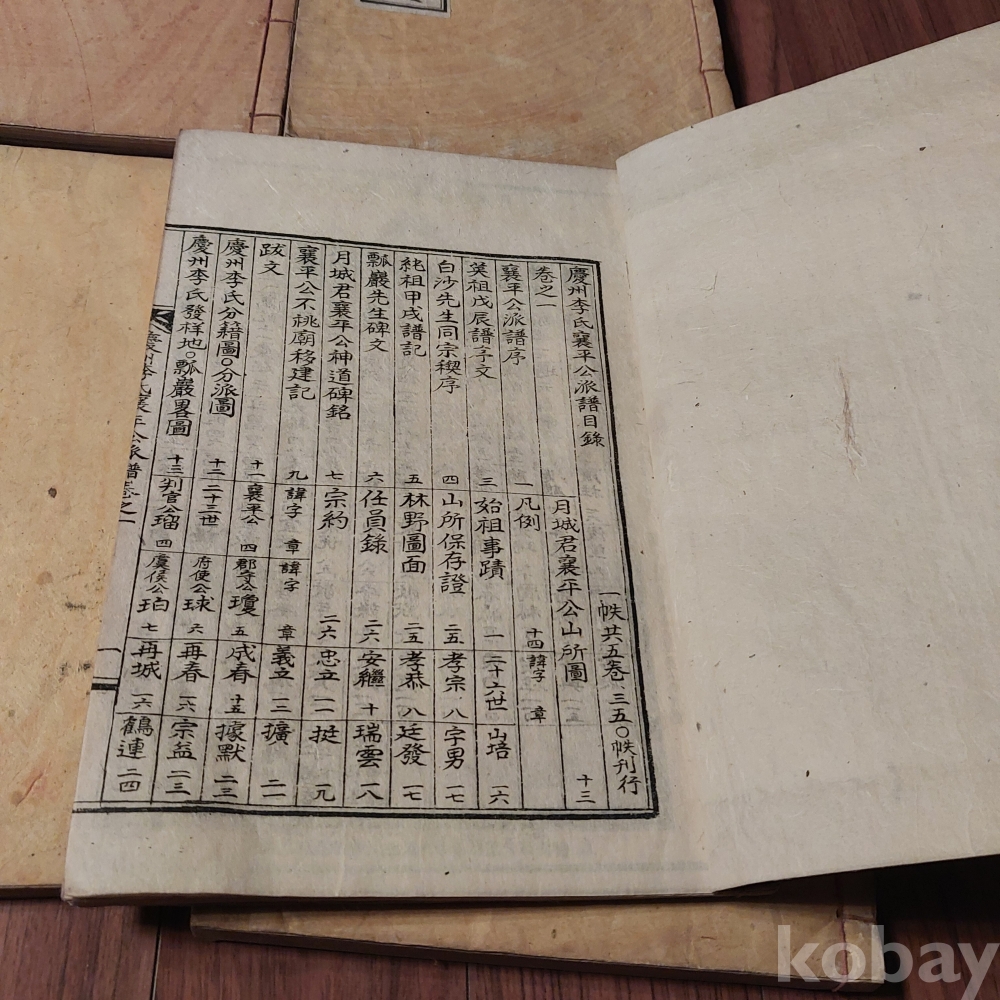 慶州李氏襄平公派譜目錄 一帙共五卷 三五〇帙刊行
卷之一 月城君襄平公山所圖 十三
襄平公派譜序 一 凡例 十四 諱字 章
英祖戊辰譜字文 三 始祖事蹟 一 二十六世 山培 一六
白沙先生同宗稧序 四 山所保存證 二五 孝宗 八 字男 一七
純祖甲戌譜記 五 林野圖面 二五 孝恭 八 廷發 一七
瓢巖先生碑文 六 任員錄 二六 安繼 十 瑞雲 一八
月城君襄平公神道碑銘 七 宗約 二六 忠立 一一 挺 一九
襄平公不祧廟移建記 九 諱字 章 諱字 章 義立 一二 擴 二一
跋文 十一 襄平公 四 郡守公瓊 五 成春 十五 據默 二三
慶州李氏分籍圖〇分派圖 十二 二十三世 府使公球 六 再春 一六 宗益 二三
慶州李氏發样地〇瓢巖畧圖 十三 判官公瑠 四 虞侯公珀 七 再城 一六 鶴連 二四
慶州李氏襄平公派譜卷之一 一
kobay